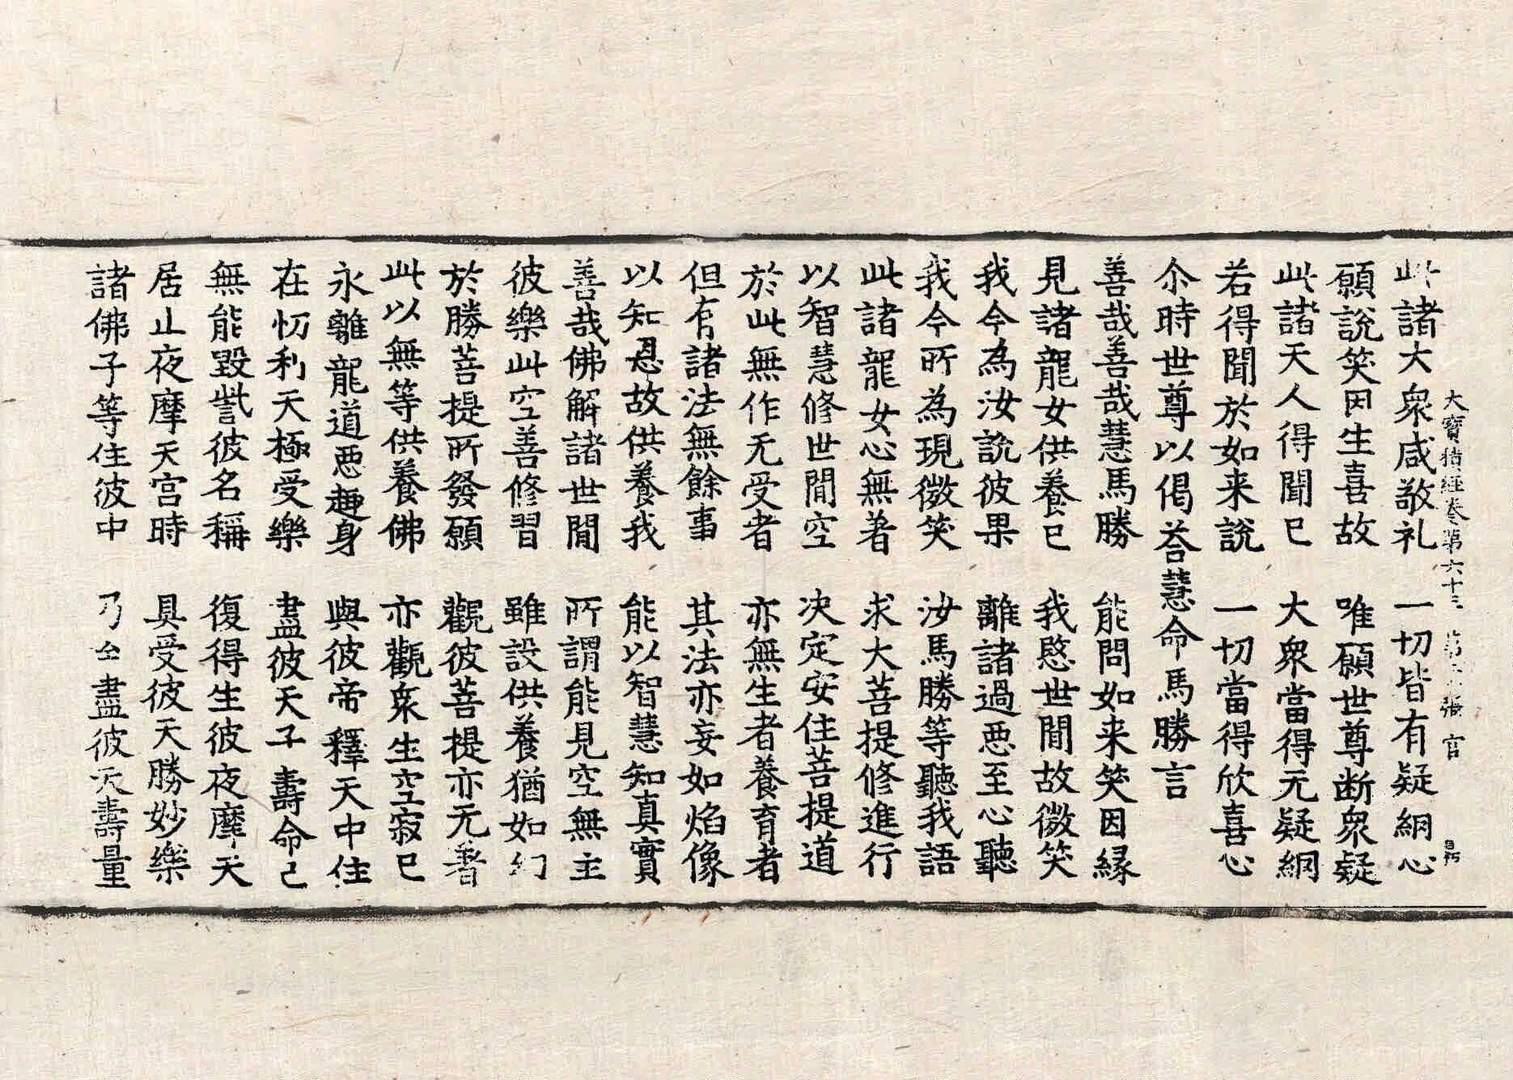 大寶積經卷第六十三 張 官
此諸大衆咸敬礼 一切皆有疑網心
願說笑因生喜故 唯願世尊断衆疑
此諸天人得聞已 大衆當得无疑網
若得聞於如来說 一切當得欣喜心
尒時世尊以偈荅慧命馬勝言
善哉善哉慧馬勝 能問如来笑因縁
見諸龍女供養已 我愍世間故微笑
我今為汝說彼果 離諸過惡至心聽
我今所為現微笑 汝馬勝等聽我語
此諸龍女心無著 求大菩提修進行
以智慧修世間空 决定安住菩提道
於此無作无受者 亦無生者養育者
但有諸法無餘事 其法亦妄如焰像
以知恩故供養我 能以智慧知真實
善哉佛解諸世間 所謂能見空無主
彼樂此空善修習 雖設供養猶如幻
於勝菩提所發願 觀彼菩提亦无著
此以無等供養佛 亦觀衆生空寂已
永離龍道惡趣身 與彼帝釋天中住
在忉利天極受樂 盡彼天子壽命已
無能毀呰彼名稱 復得生彼夜摩天
居止夜摩天宮時 具受彼天勝妙樂
諸佛子等住彼中 乃至盡彼天壽量